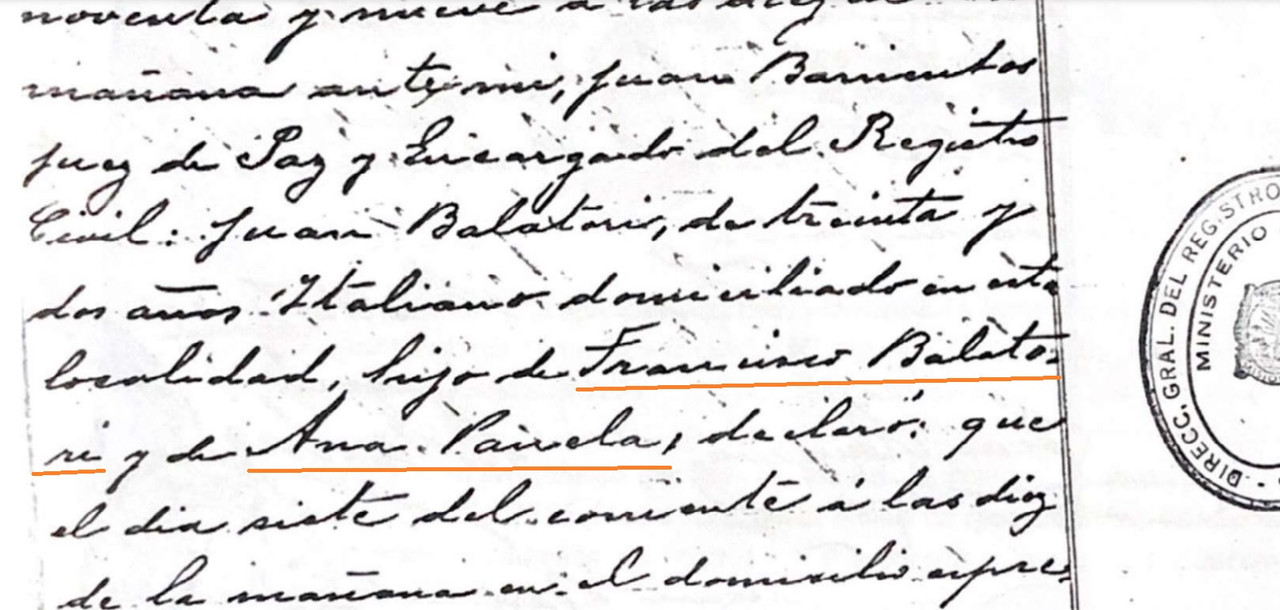 noventa y nueve á las diez de
mañana ante mi, Juan Barrientos
Juez de Paz y Encargado del Registro
Civil: Juan Balatori, de treinta y
dos años Italiano domiciliado en esta
localidad, hijo de Francisco Balato-
ri y de Ana Pairela, declaró: que
el dia siete del corriente á las diez
de la mañana en el domicilio expre-
DIRECC. GRAL. DEL REGISTRO
MINISTERIO